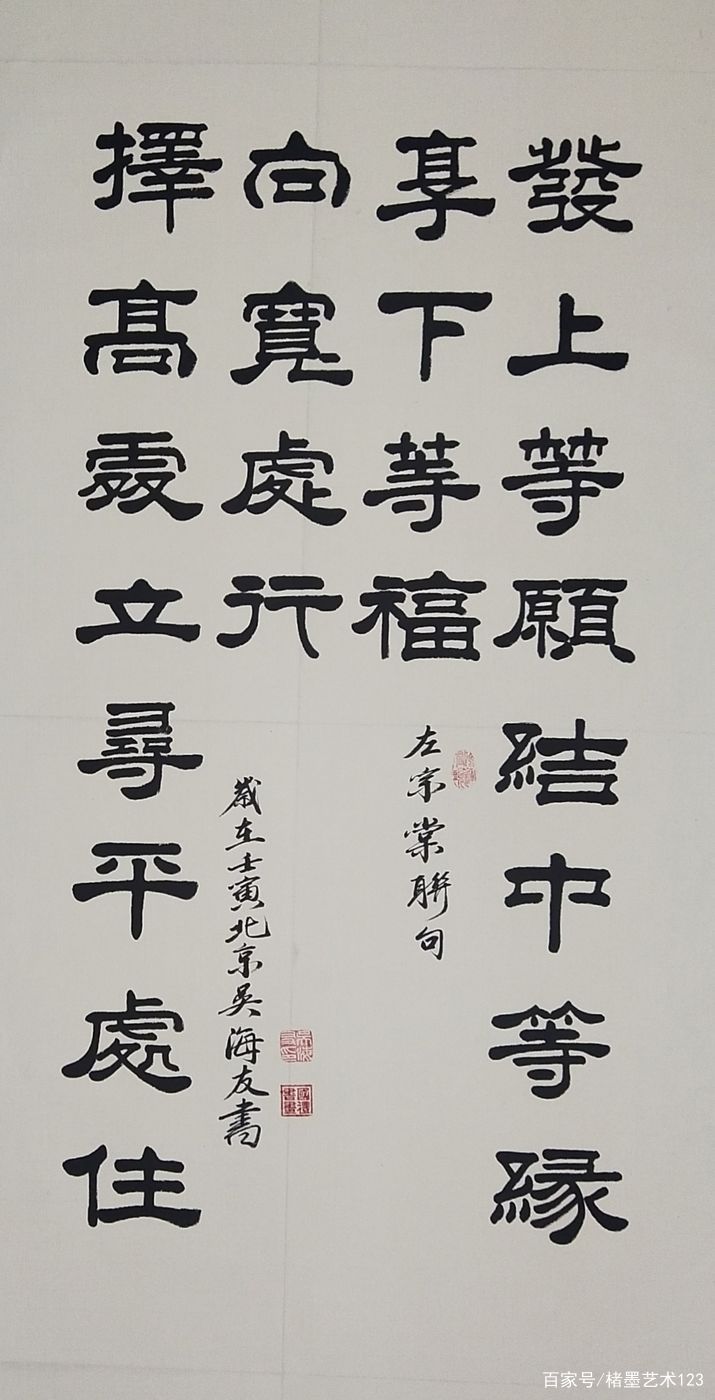 發上等願結中等緣
享下等福
左宗棠聯句
擇高處立尋平處住
向寬處行
歲在壬寅北京吳海友書
百家号/楮墨艺术123